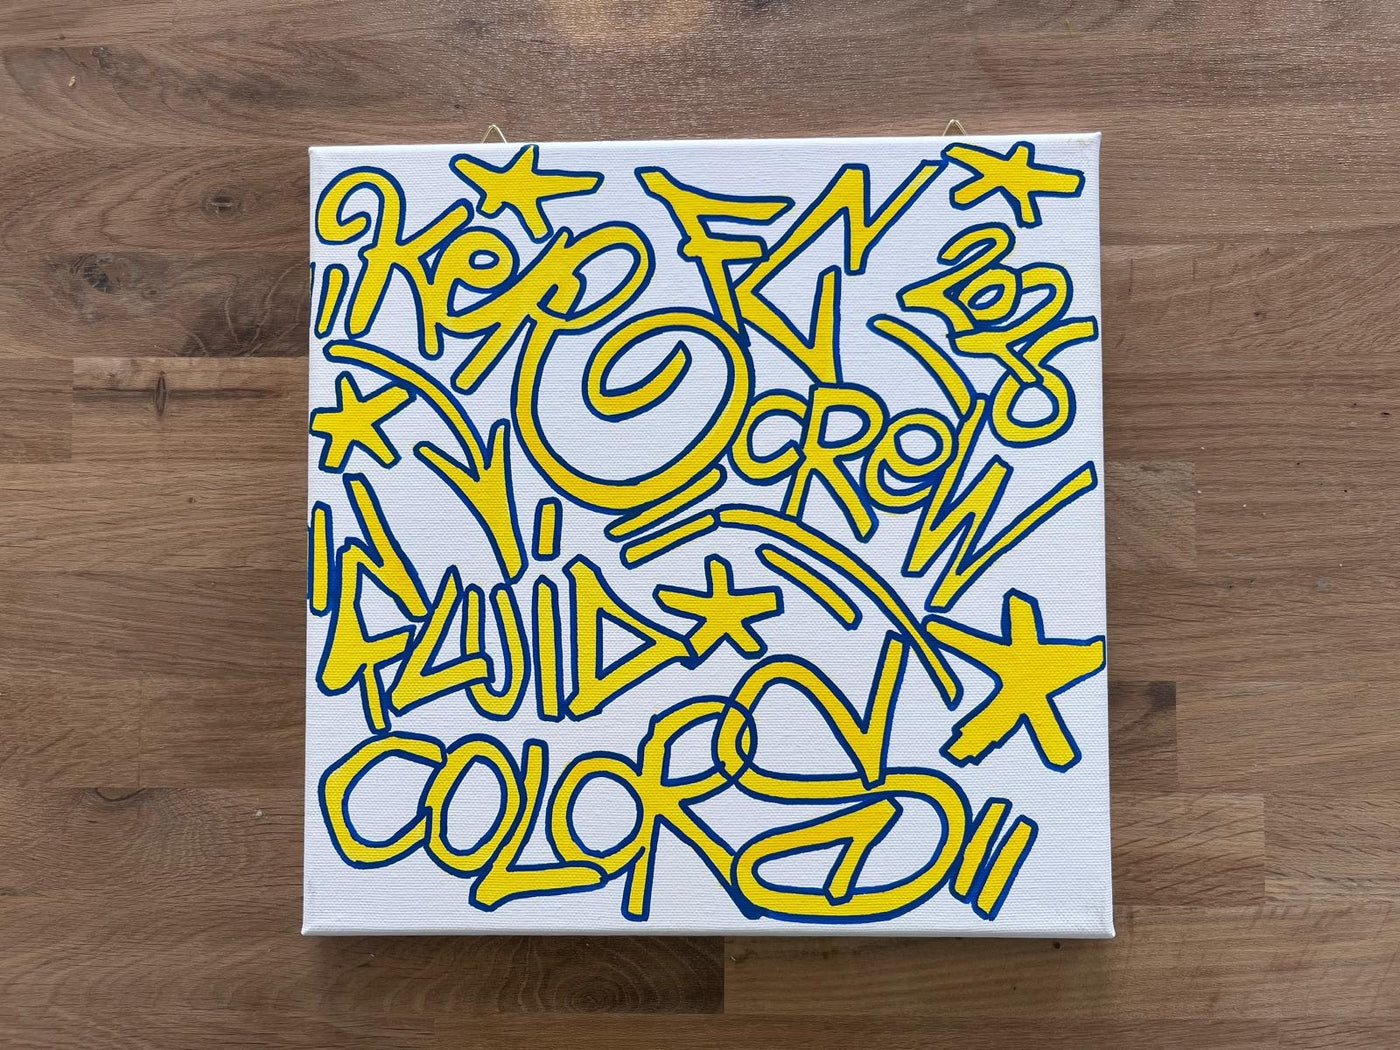 "Kero FC 2025
CREW
FLUID
COLORS"